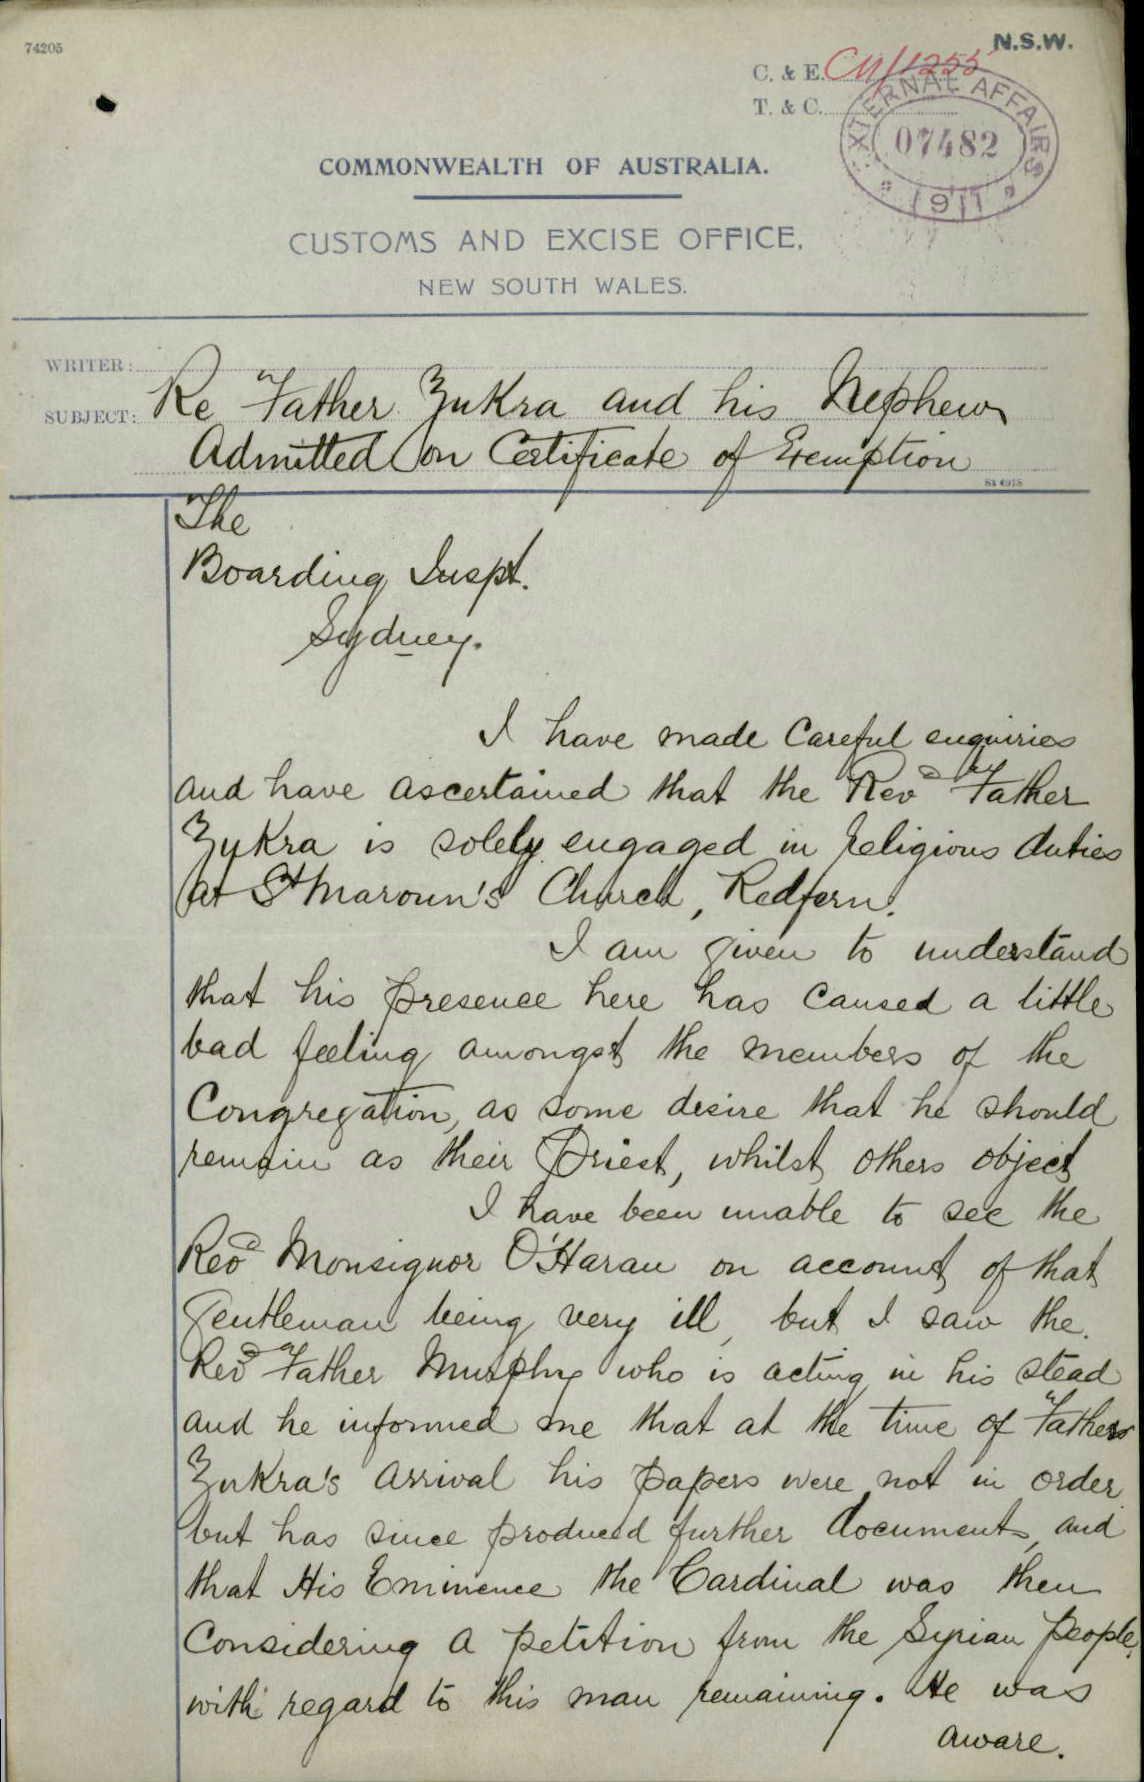 74205
N.S.W.
C. & E. C11/1255
T. & C.
EXTERNAL AFFAIRS
07482
1911
COMMONWEALTH OF AUSTRALIA.
CUSTOMS AND EXCISE OFFICE,
NEW SOUTH WALES.
WRITER:
SUBJECT: Re Father Zukra and his Nephew
Admitted on Certificate of Exemption
The
Boarding Inspt.
Sydney.
I have made careful enquiries
and have ascertained that the Revd Father
Zukra is solely engaged in religious duties
at St Maroun's Church, Redfern.
I am given to understand
that his presence here has caused a little
bad feeling amongst the members of the
Congregation, as some desire that he should
remain as their Priest, whilst others object
I have been unable to see the
Revd Monsignor O'Haran on account of that
gentleman being very ill, but I saw the
Revd Father Murphy who is acting in his stead
and he informed me that at the time of Father
Zukra's arrival his papers were not in order
but has since produced further documents, and
that His Eminence the Cardinal was then
considering a petition from the Syrian people,
with regard to this man remaining. He was
aware.